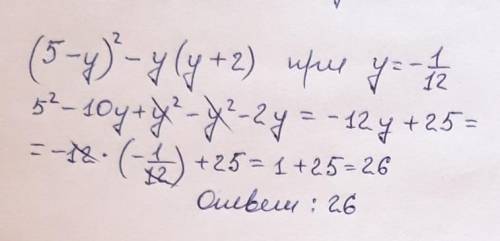 (5-y)² - y(y+2) при y = -1/12
5² - 10y + y² - y² - 2y = -12y + 25 =
= -12 · (-1/12) + 25 = 1 + 25 = 26
Ответ: 26